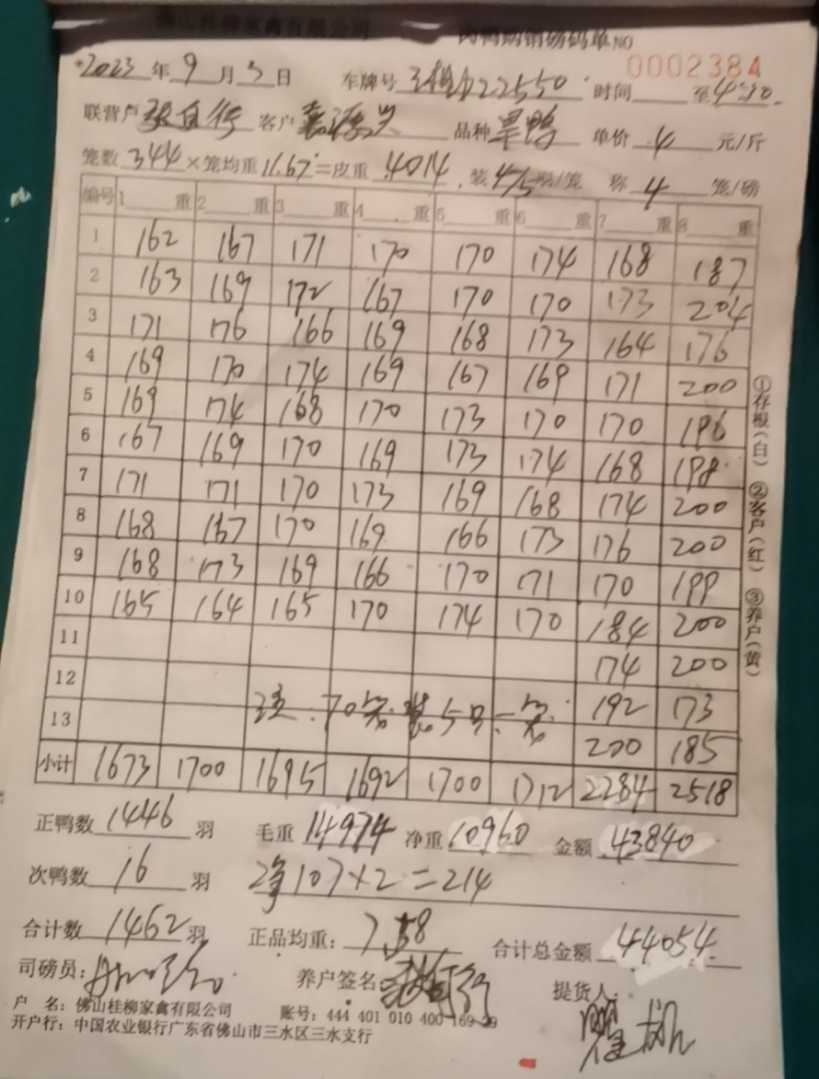 佛山桂柳家禽有限公司 肉鸭购销磅码单 NO 0002384
2023年9月5日 车牌号 22550 时间 至4:30
联营户 张自行 客户 品种 旱鸭 单价 4 元/斤
笼数 344×笼均重 11.67=皮重 4014 装 4/5 只/笼 称 4 笼/磅
编号 1 重 2 重 3 重 4 重 5 重 6 重 7 重 8 重
1 162 167 171 170 170 174 168 187
2 163 169 172 167 170 170 173 204
3 171 176 166 169 168 173 164 176
4 169 170 174 169 167 169 171 200
5 169 174 168 170 173 170 170 196
6 167 169 170 169 173 174 168 198
7 171 171 170 173 169 168 174 200
8 168 167 170 169 166 173 176 200
9 168 173 169 166 170 171 170 199
10 165 164 165 170 174 170 184 200
11 174 200
12 192 173
13 注:70笼装5只一笼 200 185
小计 1673 1700 1695 1692 1700 1712 2284 2518
正鸭数 1446 羽 毛重 14974 净重 10960 金额 43840
次鸭数 16 羽 净107×2=214
合计数 1462 羽 正品均重: 7.58 合计总金额 44054
司磅员: 养户签名: 张自行 提货人:
户 名: 佛山桂柳家禽有限公司 账号: 444 401 010 400 169 29
开户行: 中国农业银行广东省佛山市三水区三水支行
①存根(白) ②客户(红) ③养户(黄)